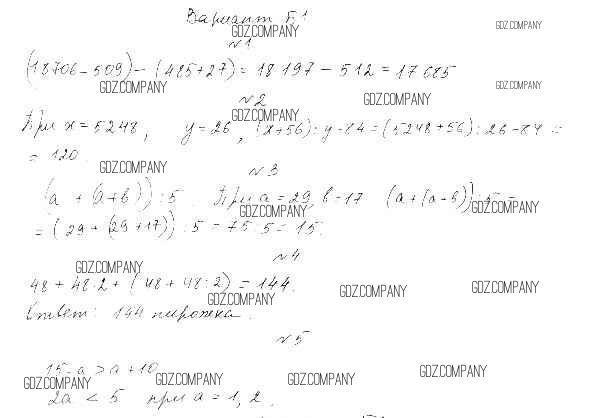 Вариант Б1
GDZ.COMPANY
GDZ.COMPANY
№1
(18706-509)-(485+27)=18197-512=17685
GDZ.COMPANY
GDZ.COMPANY
№2
GDZ.COMPANY
GDZ.COMPANY
При x=5248, y=26, (x+56):y-84=(5248+56):26-84=
=120.
GDZ.COMPANY
№3
(a+(a+b)):5. При a=29, b=17 (a+(a+b)):5=
GDZ.COMPANY
GDZ.COMPANY
=(29+(29+17)):5=75:5=15.
№4
GDZ.COMPANY
48+48·2+(48+48:2)=144.
GDZ.COMPANY
GDZ.COMPANY
GDZ.COMPANY
Ответ: 144 пирожка.
№5
15-a>a+10
GDZ.COMPANY
GDZ.COMPANY
GDZ.COMPANY
GDZ.COMPANY
2a<5 при a=1,2.